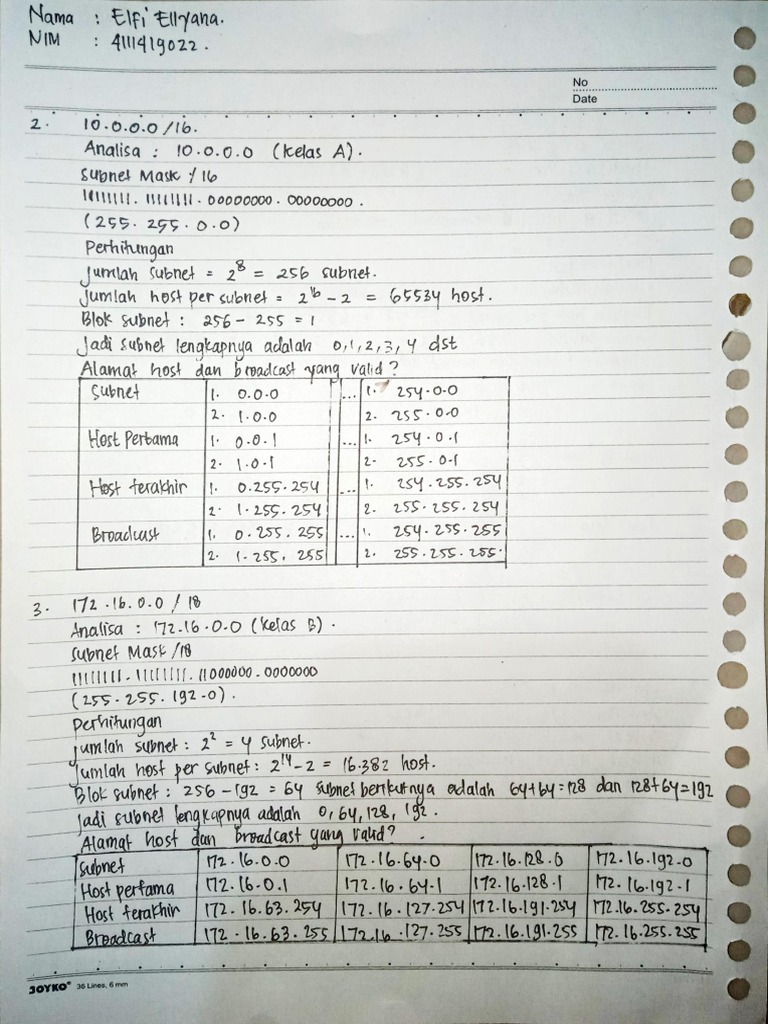 Nama : Elfi Ellyana.
NIM : 4111419022.
No
Date
2. 10.0.0.0 /16.
Analisa : 10.0.0.0 (Kelas A).
Subnet Mask /16
11111111. 11111111. 00000000. 00000000.
(255. 255. 0.0)
Perhitungan
Jumlah subnet = 2⁸ = 256 subnet.
Jumlah host per subnet = 2¹⁶ - 2 = 65534 host.
Blok subnet : 256 - 255 = 1
Jadi subnet lengkapnya adalah 0,1,2,3,4 dst
Alamat host dan broadcast yang valid?
Subnet 1. 0.0.0 ... 1. 254.0.0
2. 1.0.0 2. 255.0.0
Host Pertama 1. 0.0.1 ... 1. 254.0.1
2. 1.0.1 2. 255.0.1
Host terakhir 1. 0.255.254 ... 1. 254.255.254
2. 1.255.254 2. 255.255.254
Broadcast 1. 0.255.255 ... 1. 254.255.255
2. 1.255.255 2. 255.255.255.
3. 172.16.0.0 / 18
Analisa : 172.16.0.0 (Kelas B).
Subnet Mask /18
11111111. 11111111. 11000000. 0000000
(255.255.192.0).
Perhitungan
Jumlah subnet : 2² = 4 subnet.
Jumlah host per subnet : 2¹⁴ - 2 = 16.382 host.
Blok subnet : 256 - 192 = 64 subnet berikutnya adalah 64+64=128 dan 128+64=192
Jadi subnet lengkapnya adalah 0, 64, 128, 192.
Alamat host dan broadcast yang valid?
Subnet 172.16.0.0 172.16.64.0 172.16.128.0 172.16.192.0
Host pertama 172.16.0.1 172.16.64.1 172.16.128.1 172.16.192.1
Host terakhir 172.16.63.254 172.16.127.254 172.16.191.254 172.16.255.254
Broadcast 172.16.63.255 172.16.127.255 172.16.191.255 172.16.255.255
JOYKO® 36 Lines, 6 mm